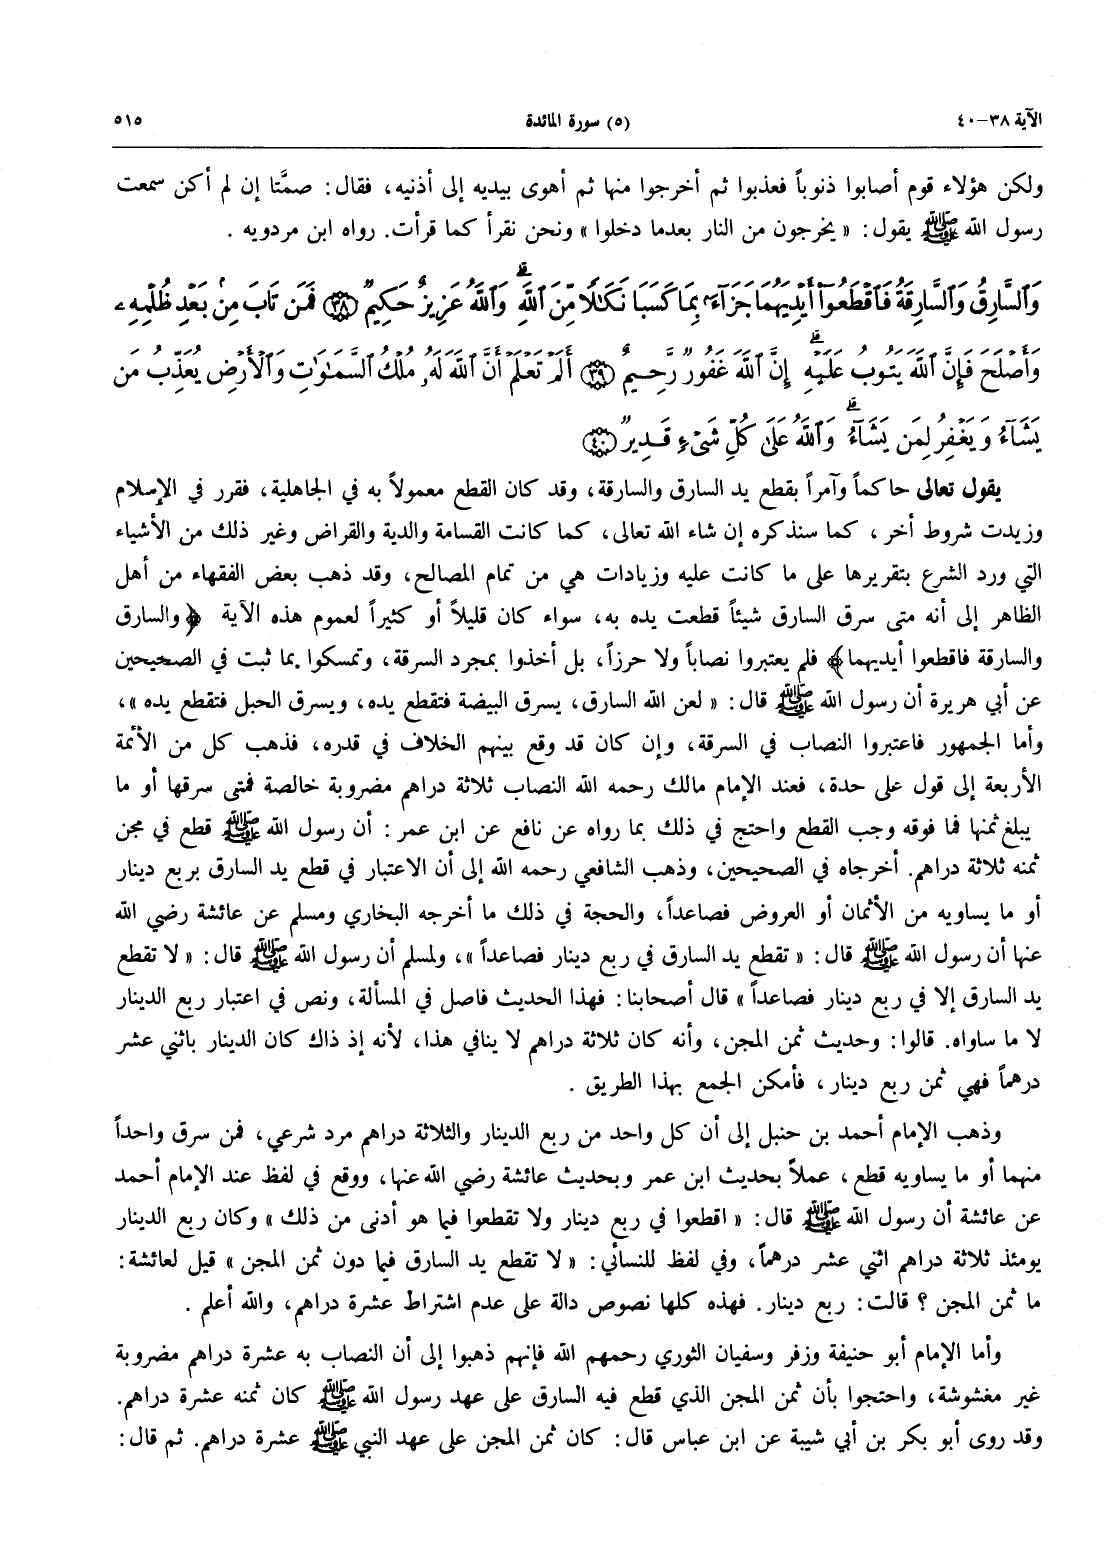 الآية ٣٨-٤٠ (٥) سورة المائدة ٥١٥
ولكن هؤلاء قوم أصابوا ذنوباً فعذبوا ثم أخرجوا منها ثم أهوى بيديه إلى أذنيه، فقال: صمَّتا إن لم أكن سمعت
رسول الله ﷺ يقول: « يخرجون من النار بعدما دخلوا » ونحن نقرأ كما قرأت. رواه ابن مردويه .
وَٱلسَّارِقُ وَٱلسَّارِقَةُ فَٱقْطَعُوٓا۟ أَيْدِيَهُمَا جَزَآءًۢ بِمَا كَسَبَا نَكَٰلًا مِّنَ ٱللَّهِ ۗ وَٱللَّهُ عَزِيزٌ حَكِيمٌ ﴿٣٨﴾ فَمَن تَابَ مِنۢ بَعْدِ ظُلْمِهِۦ
وَأَصْلَحَ فَإِنَّ ٱللَّهَ يَتُوبُ عَلَيْهِ ۗ إِنَّ ٱللَّهَ غَفُورٌ رَّحِيمٌ ﴿٣٩﴾ أَلَمْ تَعْلَمْ أَنَّ ٱللَّهَ لَهُۥ مُلْكُ ٱلسَّمَٰوَٰتِ وَٱلْأَرْضِ يُعَذِّبُ مَن
يَشَآءُ وَيَغْفِرُ لِمَن يَشَآءُ ۗ وَٱللَّهُ عَلَىٰ كُلِّ شَىْءٍ قَدِيرٌ ﴿٤٠﴾
يقول تعالى حاكماً وآمراً بقطع يد السارق والسارقة، وقد كان القطع معمولاً به في الجاهلية، فقرر في الإسلام
وزيدت شروط أخر، كما سنذكره إن شاء الله تعالى، كما كانت القسامة والدية والقراض وغير ذلك من الأشياء
التي ورد الشرع بتقريرها على ما كانت عليه وزيادات هي من تمام المصالح، وقد ذهب بعض الفقهاء من أهل
الظاهر إلى أنه متى سرق السارق شيئاً قطعت يده به، سواء كان قليلاً أو كثيراً لعموم هذه الآية ﴿ والسارق
والسارقة فاقطعوا أيديهما﴾ فلم يعتبروا نصاباً ولا حرزاً، بل أخذوا بمجرد السرقة، وتمسكوا بما ثبت في الصحيحين
عن أبي هريرة أن رسول الله ﷺ قال: « لعن الله السارق، يسرق البيضة فتقطع يده، ويسرق الحبل فتقطع يده »،
وأما الجمهور فاعتبروا النصاب في السرقة، وإن كان قد وقع بينهم الخلاف في قدره، فذهب كل من الأئمة
الأربعة إلى قول على حدة، فعند الإمام مالك رحمه الله النصاب ثلاثة دراهم مضروبة خالصة فمتى سرقها أو ما
يبلغ ثمنها فما فوقه وجب القطع واحتج في ذلك بما رواه عن نافع عن ابن عمر: أن رسول الله ﷺ قطع في مجن
ثمنه ثلاثة دراهم. أخرجاه في الصحيحين، وذهب الشافعي رحمه الله إلى أن الاعتبار في قطع يد السارق بربع دينار
أو ما يساويه من الأثمان أو العروض فصاعداً، والحجة في ذلك ما أخرجه البخاري ومسلم عن عائشة رضي الله
عنها أن رسول الله ﷺ قال: « تقطع يد السارق في ربع دينار فصاعداً »، ولمسلم أن رسول الله ﷺ قال: « لا تقطع
يد السارق إلا في ربع دينار فصاعداً » قال أصحابنا: فهذا الحديث فاصل في المسألة، ونص في اعتبار ربع الدينار
لا ما ساواه. قالوا: وحديث ثمن المجن، وأنه كان ثلاثة دراهم لا ينافي هذا، لأنه إذ ذاك كان الدينار باثني عشر
درهماً فهي ثمن ربع دينار، فأمكن الجمع بهذا الطريق .
وذهب الإمام أحمد بن حنبل إلى أن كل واحد من ربع الدينار والثلاثة دراهم مرد شرعي، فمن سرق واحداً
منهما أو ما يساويه قطع، عملاً بحديث ابن عمر وبحديث عائشة رضي الله عنها، ووقع في لفظ عند الإمام أحمد
عن عائشة أن رسول الله ﷺ قال: « اقطعوا في ربع دينار ولا تقطعوا فيما هو أدنى من ذلك » وكان ربع الدينار
يومئذ ثلاثة دراهم اثني عشر درهماً، وفي لفظ للنسائي: « لا تقطع يد السارق فيما دون ثمن المجن » قيل لعائشة:
ما ثمن المجن ؟ قالت: ربع دينار. فهذه كلها نصوص دالة على عدم اشتراط عشرة دراهم، والله أعلم .
وأما الإمام أبو حنيفة وزفر وسفيان الثوري رحمهم الله فإنهم ذهبوا إلى أن النصاب به عشرة دراهم مضروبة
غير مغشوشة، واحتجوا بأن ثمن المجن الذي قطع فيه السارق على عهد رسول الله ﷺ كان ثمنه عشرة دراهم.
وقد روى أبو بكر بن أبي شيبة عن ابن عباس قال: كان ثمن المجن على عهد النبي ﷺ عشرة دراهم. ثم قال: